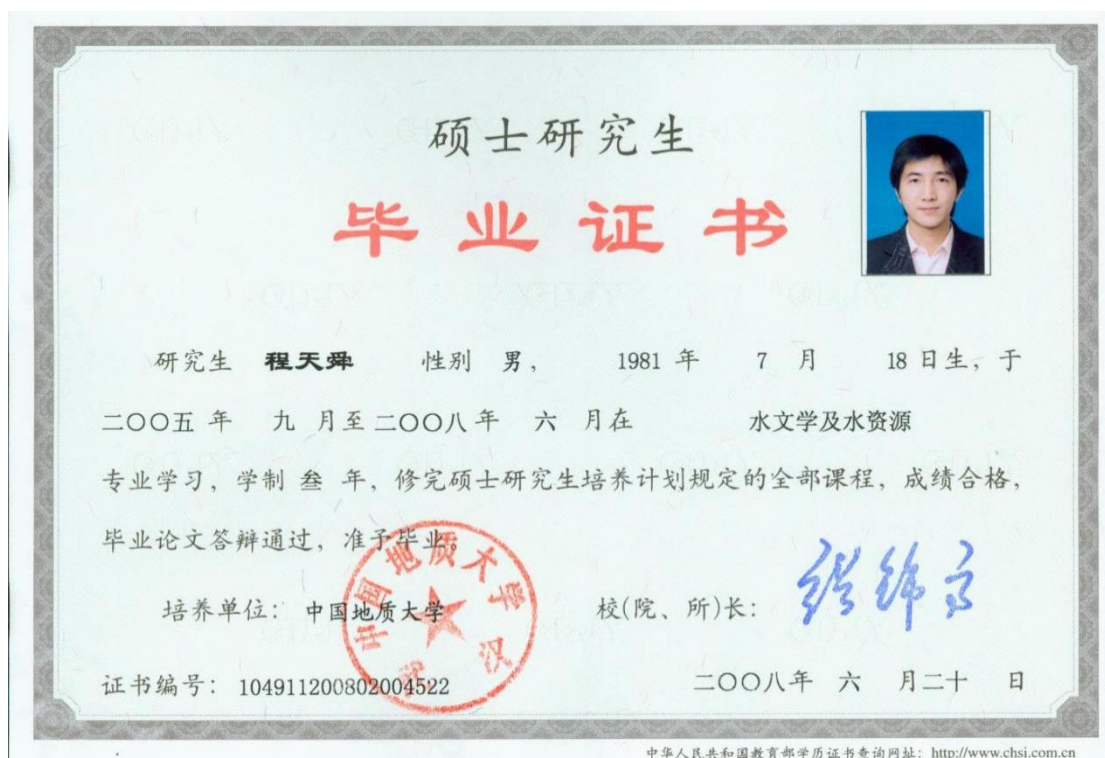 硕士研究生
毕业证书
研究生 程天舜 性别 男, 1981 年 7 月 18 日生, 于
二〇〇五 年 九 月至 二〇〇八 年 六 月在 水文学及水资源
专业学习, 学制 叁 年, 修完硕士研究生培养计划规定的全部课程, 成绩合格,
毕业论文答辩通过, 准予毕业。
中国地质大学
武汉
培养单位: 中国地质大学 校(院、所)长:
证书编号: 104911200802004522 二〇〇八年 六 月二十 日
中华人民共和国教育部学历证书查询网址: http://www.chsi.com.cn